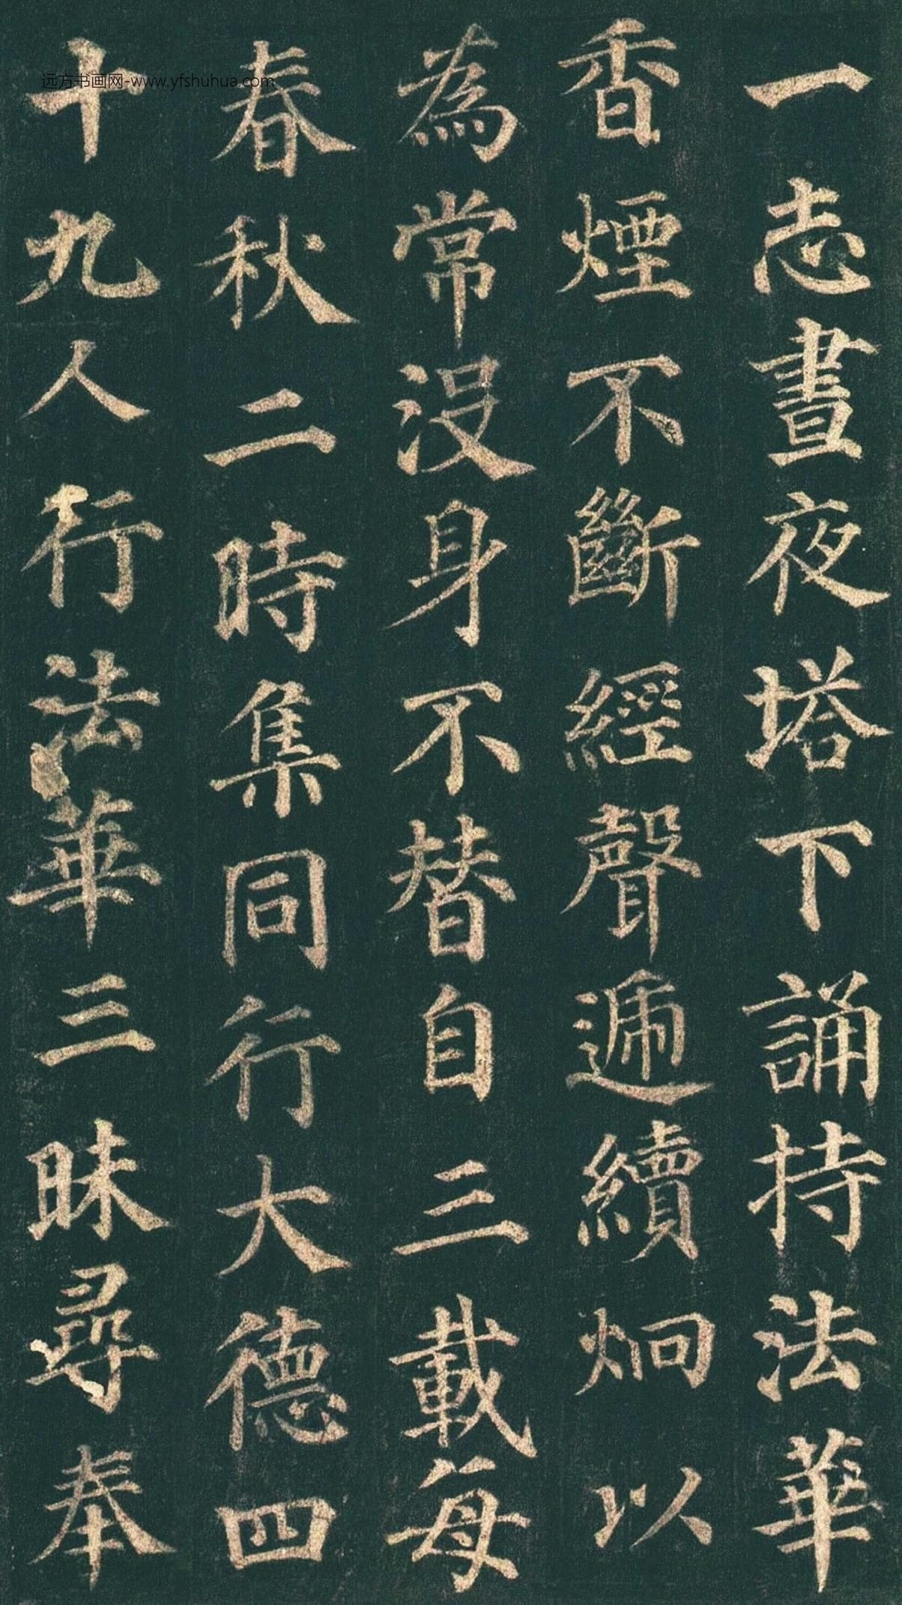 一志晝夜塔下誦持法華
香煙不斷經聲遞續炯以
為常沒身不替自三載每
春秋二時集同行大德四
十九人行法華三昧尋奉
远方书画网-www.yfshuhua.com